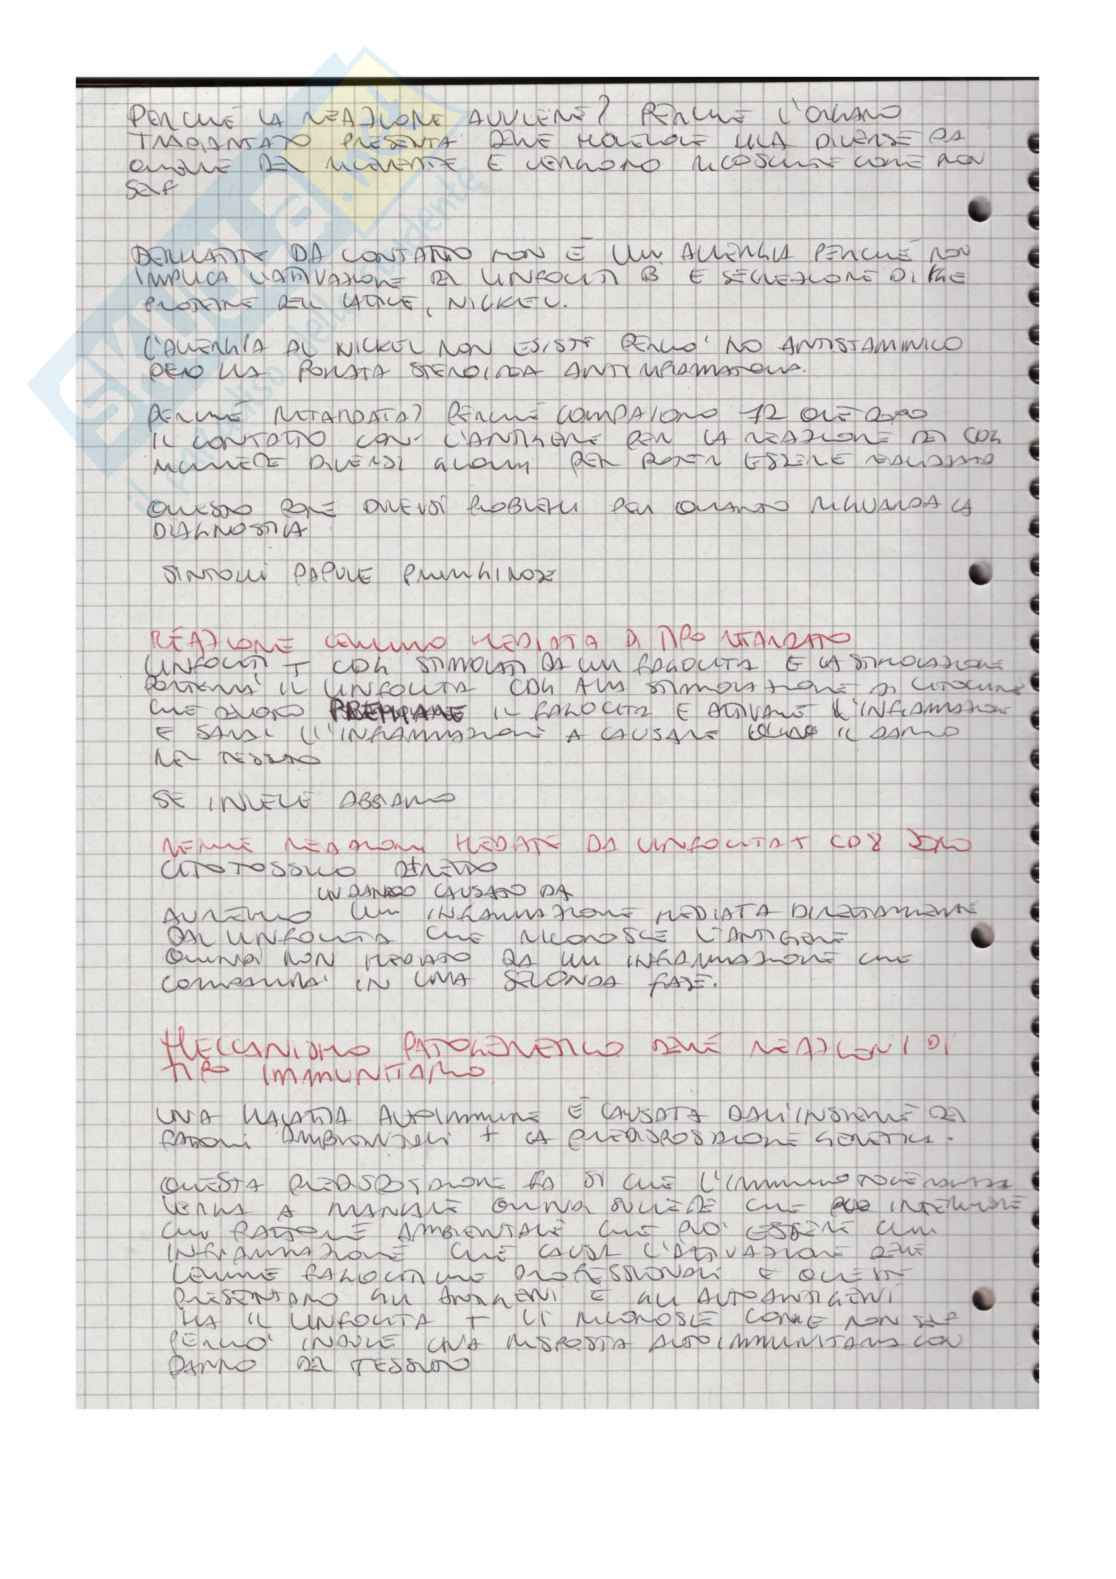 PERCHÉ LA REAZIONE AVVIENE? PERCHÉ L'ORGANO
TRAPIANTATO PRESENTA DELLE MOLECOLE HLA DIVERSE DA
QUELLE DEL RICEVENTE E VENGONO RICOSCIUTE COME NON
SELF
DERMATITE DA CONTATTO NON È UN ALLERGIA PERCHÉ NON
IMPLICA L'ATTIVAZIONE DEI LINFOCITI B E SECREZIONE DI IGE
PROTEINE DEL LATTICE, NICKEL.
L'ALLERGIA AL NICKEL NON ESISTE PERCIÒ NO ANTISTAMINICO
PERÒ LA POMATA STEROIDEA ANTINFIAMMATORIA.
PERCHÉ RITARDATA? PERCHÉ COMPAIONO 72 ORE DOPO
IL CONTATTO CON L'ANTIGENE PER LA REAZIONE DEI CD4
RICHIEDE DIVERSI GIORNI PER POTER ESSERE REALIZZATA
QUESTO PONE DIVERSI PROBLEMI PER QUANTO RIGUARDA LA
DIAGNOSTICA
SINTOMI PAPULE PRURIGINOSE
REAZIONE CELLULO MEDIATA DI TIPO RITARDATO
LINFOCITI T CD4 STIMOLATI DA UN FAGOCITA E LA STIMOLAZIONE
PORTERÀ IL LINFOCITA CD4 ALLA STIMOLAZIONE DI CITOCHINE
CHE DEVONO IL FAGOCITA E ATTIVARE L'INFIAMMAZIONE
E SARÀ L'INFIAMMAZIONE A CAUSARE IL DANNO
NEL TESSUTO
SE INVECE ABBIAMO
NELLE REAZIONI MEDIATE DA LINFOCITA T CD8 SONO
CITOTOSSICO DIRETTO
UN DANNO CAUSATO DA
AVREMO UN INFIAMMAZIONE MEDIATA DIRETTAMENTE
DAL LINFOCITA CHE RICONOSCE L'ANTIGENE
QUINDI NON MEDIATO DA UN INFIAMMAZIONE CHE
COMPARIRÀ IN UNA SECONDA FASE.
MECCANISMO PATOGENETICO DELLE REAZIONI DI
TIPO IMMUNITARIO
UNA MALATTIA AUTOIMMUNE È CAUSATA DALL'INSIEME DEI
FATTORI AMBIENTALI + LA PREDISPOSIZIONE GENETICA.
QUESTA PREDISPOSIZIONE FA SI CHE L'IMMUNOTOLLERANZA
VENGA A MANCARE QUINDI SUCCEDE CHE PUÒ INTERVENIRE
UN FATTORE AMBIENTALE CHE PUÒ ESSERE UN
INFIAMMAZIONE CHE CAUSA L'ATTIVAZIONE DELLE
CELLULE FAGOCITICHE PROFESSIONALI E QUESTE
PRESENTANO GLI ANTIGENI E GLI AUTOANTIGENI
MA IL LINFOCITA T LI RICONOSCE COME NON SELF
PERCIÒ INDUCE UNA RISPOSTA AUTOIMMUNITARIA CON
DANNO DEL TESSUTO